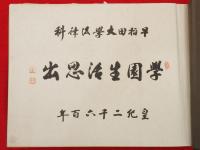 科律法學大田稻早
出思活生園學
年百六千二紀皇